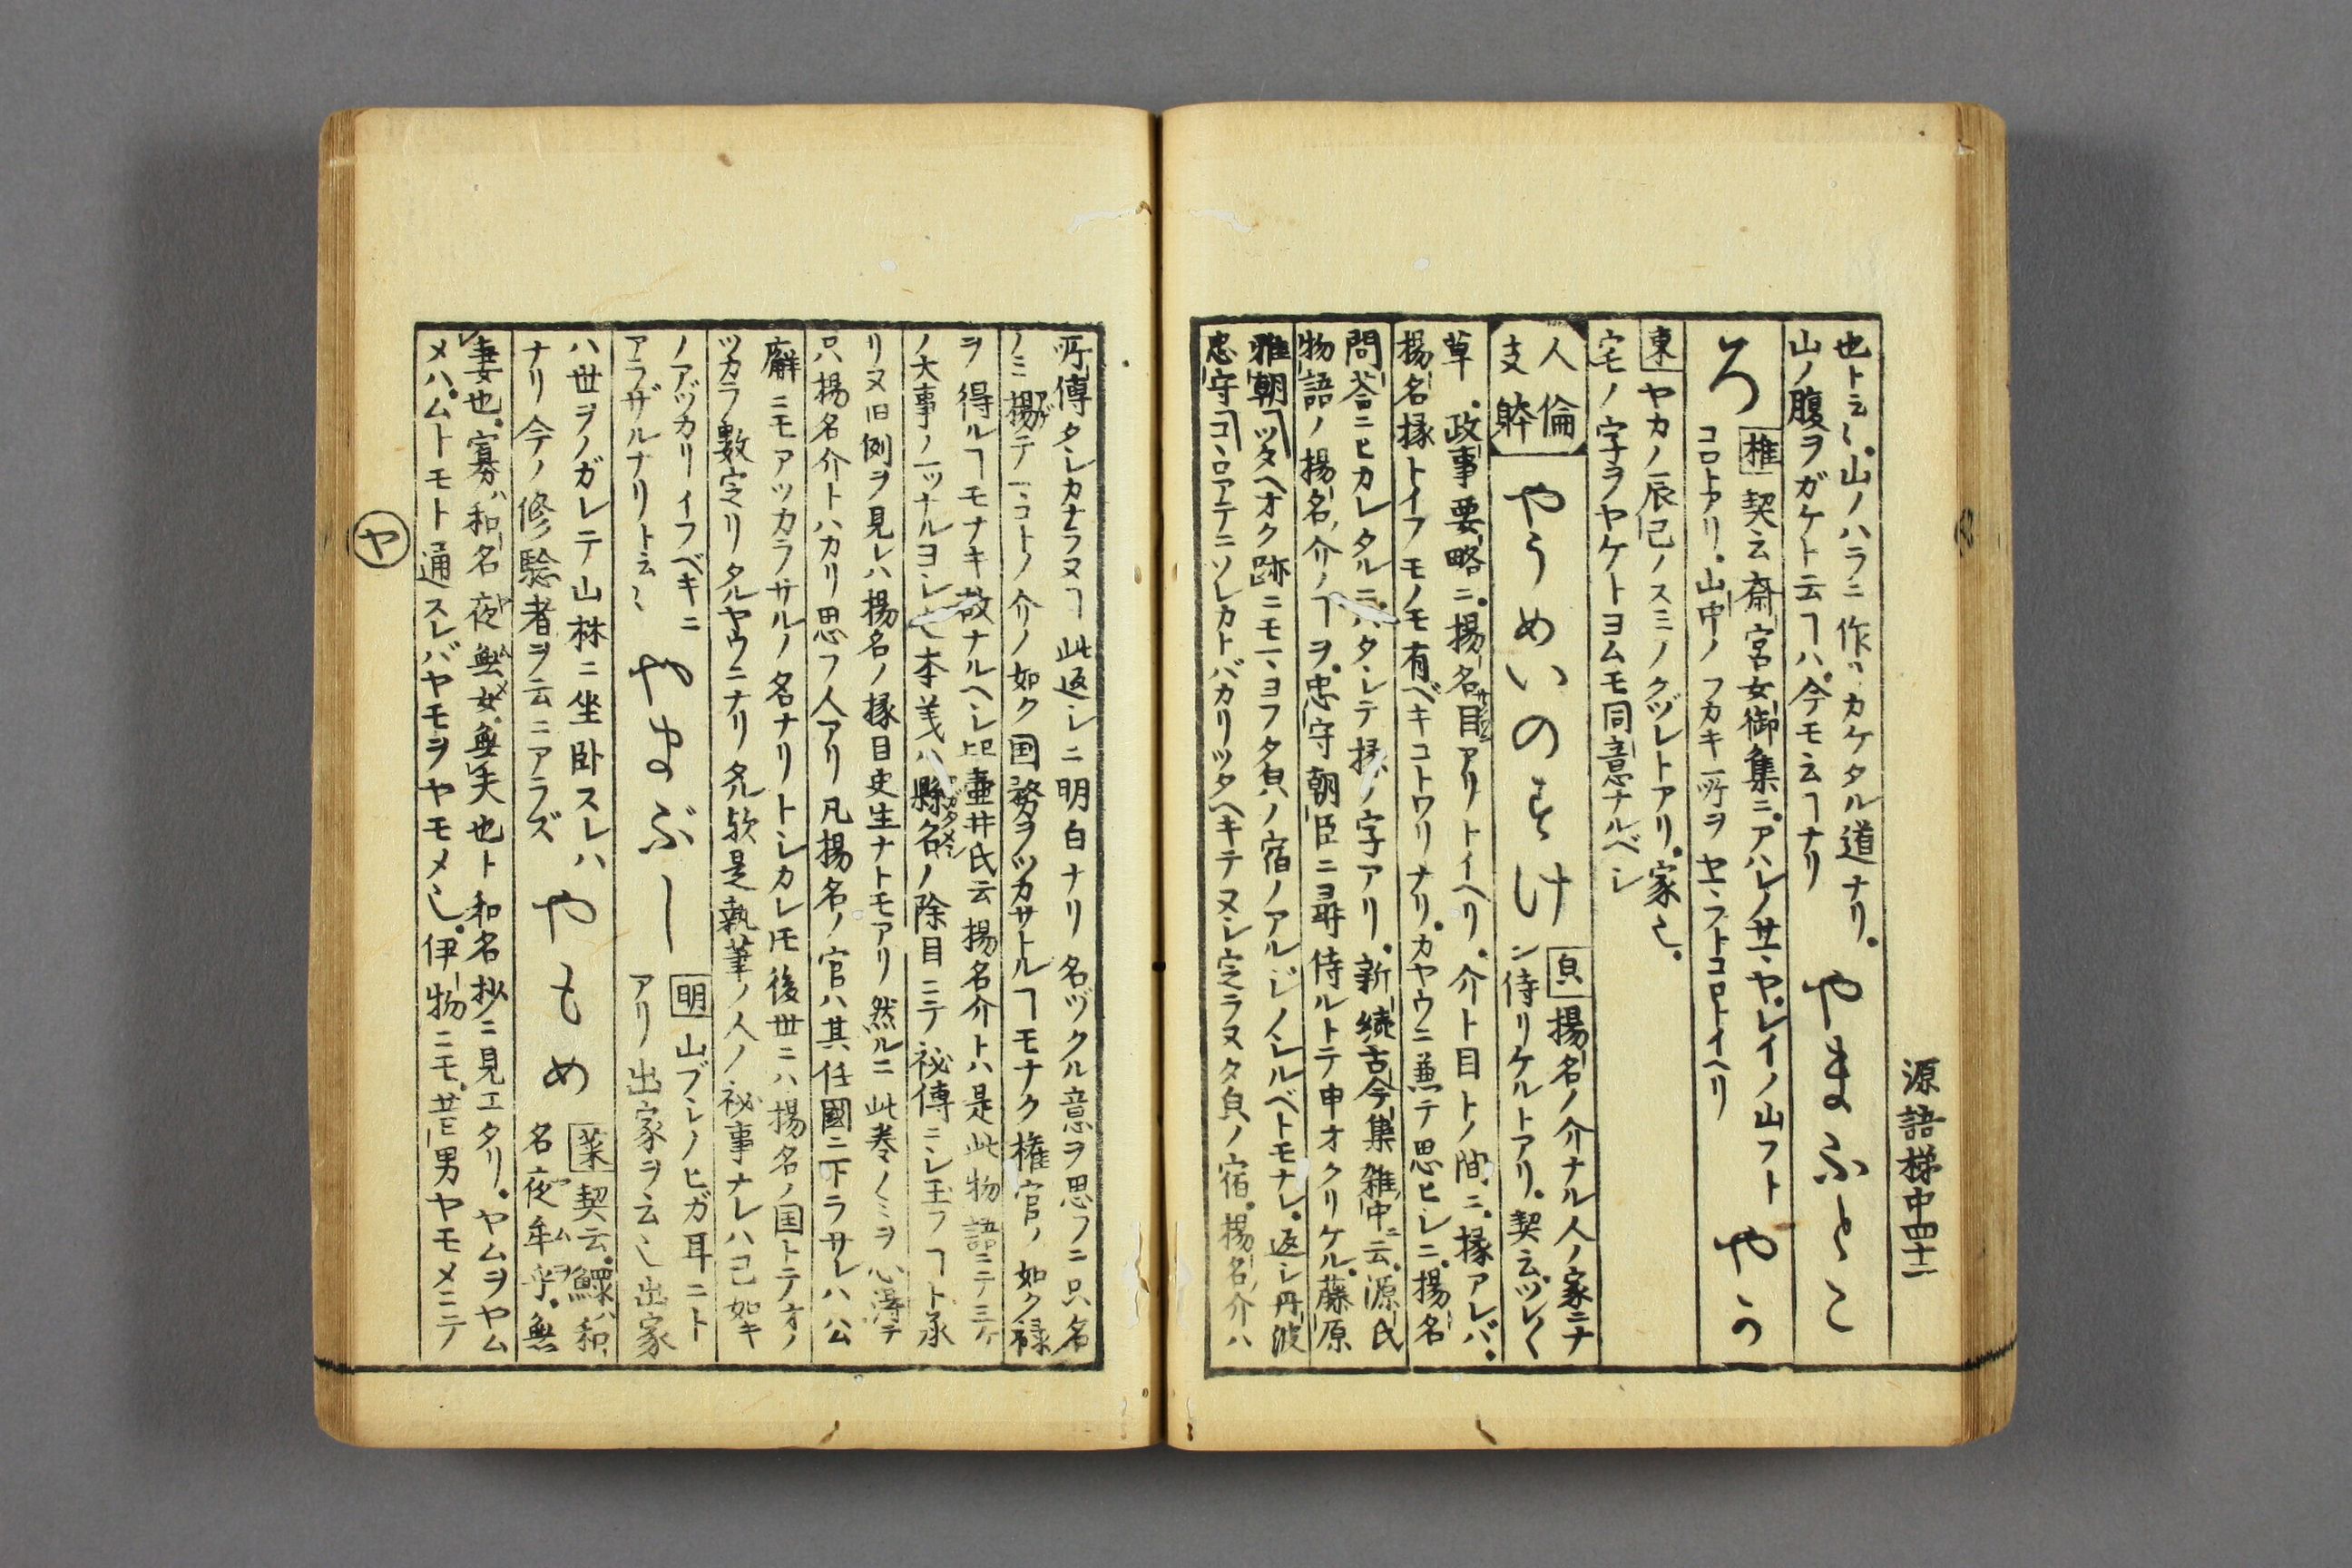 源語梯中四十二
也ト云〻山ノハラニ作リカケタル道ナリ
山ノ腹ヲガケト云ヿハ今モ云ヿナリ
やまふところ
椎 契云斎宮女御集ニアハレノサヽヤレイノ山フト
コロトアリ山中ノフカキ所ヲヤマフトコロトイヘリ
やうけ
東 ヤカノ辰巳ノスミノクヅレトアリ家也
宅ノ字ヲヤケトヨムモ同意ナルベシ
人倫
支躰
やうめいのすけ
㒵 揚名ノ介ナル人ノ家ニナ
ン侍リケルトアリ契云ツレ〱
草政事要略ニ揚名目アリトイヘリ介ト目トノ間ニ掾アレバ
揚名掾トイフモノモ有ベキコトワリナリカヤウニ兼テ思ヒシニ揚名
問荅ニヒカレタルニハタシテ掾ノ字アリ新続古今集雑中ニ云源氏
物語ノ揚名ノ介ノヿヲ忠守朝臣ニ尋侍ルトテ申オクリケル藤原
雅朝 ツタヘオク跡ニモマヨフ夕㒵ノ宿ノアルジノシルベトモナレ返シ丹波
忠守 コヽロアテニソレカトバカリツタヘキテヌシ定ラヌ夕㒵ノ宿揚名介ハ
所傳タシカナラヌヿ此返シニ明白ナリ名ヅクル意ヲ思フニ只名
ノミ揚テマコトノ介ノ如ク国務ヲツカサトルヿモナク権官ノ如ク禄
ヲ得ルヿモナキ故ナルヘシ 壷井氏云揚名介トハ是此物語ニテ三ケ
ノ大事ノ一ツナルヨシ也本義ハ縣召ノ除目ニテ祕傳ニシ玉フヿト承
リヌ旧例ヲ見レハ揚名ノ掾目史生ナトモアリ然ルニ此巻ノミヲ心得テ
只揚名介トハカリ思フ人アリ凡揚名ノ官ハ其任國ニ下ラサレハ公
廨ニモアツカラサルノ名ナリトシカレ𪜈後世ニハ揚名ノ国トテオノ
ツカラ數定リタルヤウニナリタル欤是執筆ノ人ノ祕事ナレハ己如キ
ノアヅカリイフベキニ
アラザルナリト云〻
やまぶし
明 山ブシノヒガ耳ニト
アリ出家ヲ云也出家
ハ世ヲノガレテ山林ニ坐卧スレハ
ナリ今ノ修驗者ヲ云ニアラズ
やもめ
葉 契云鰥ハ和
名夜牟乎無
妻也寡ハ和名夜無女無夫也ト和名抄ニ見エタリヤムヲヤム
メハムトモト通スレバヤモヲヤモメ也伊物ニモ昔男ヤモメニテ
ヤ